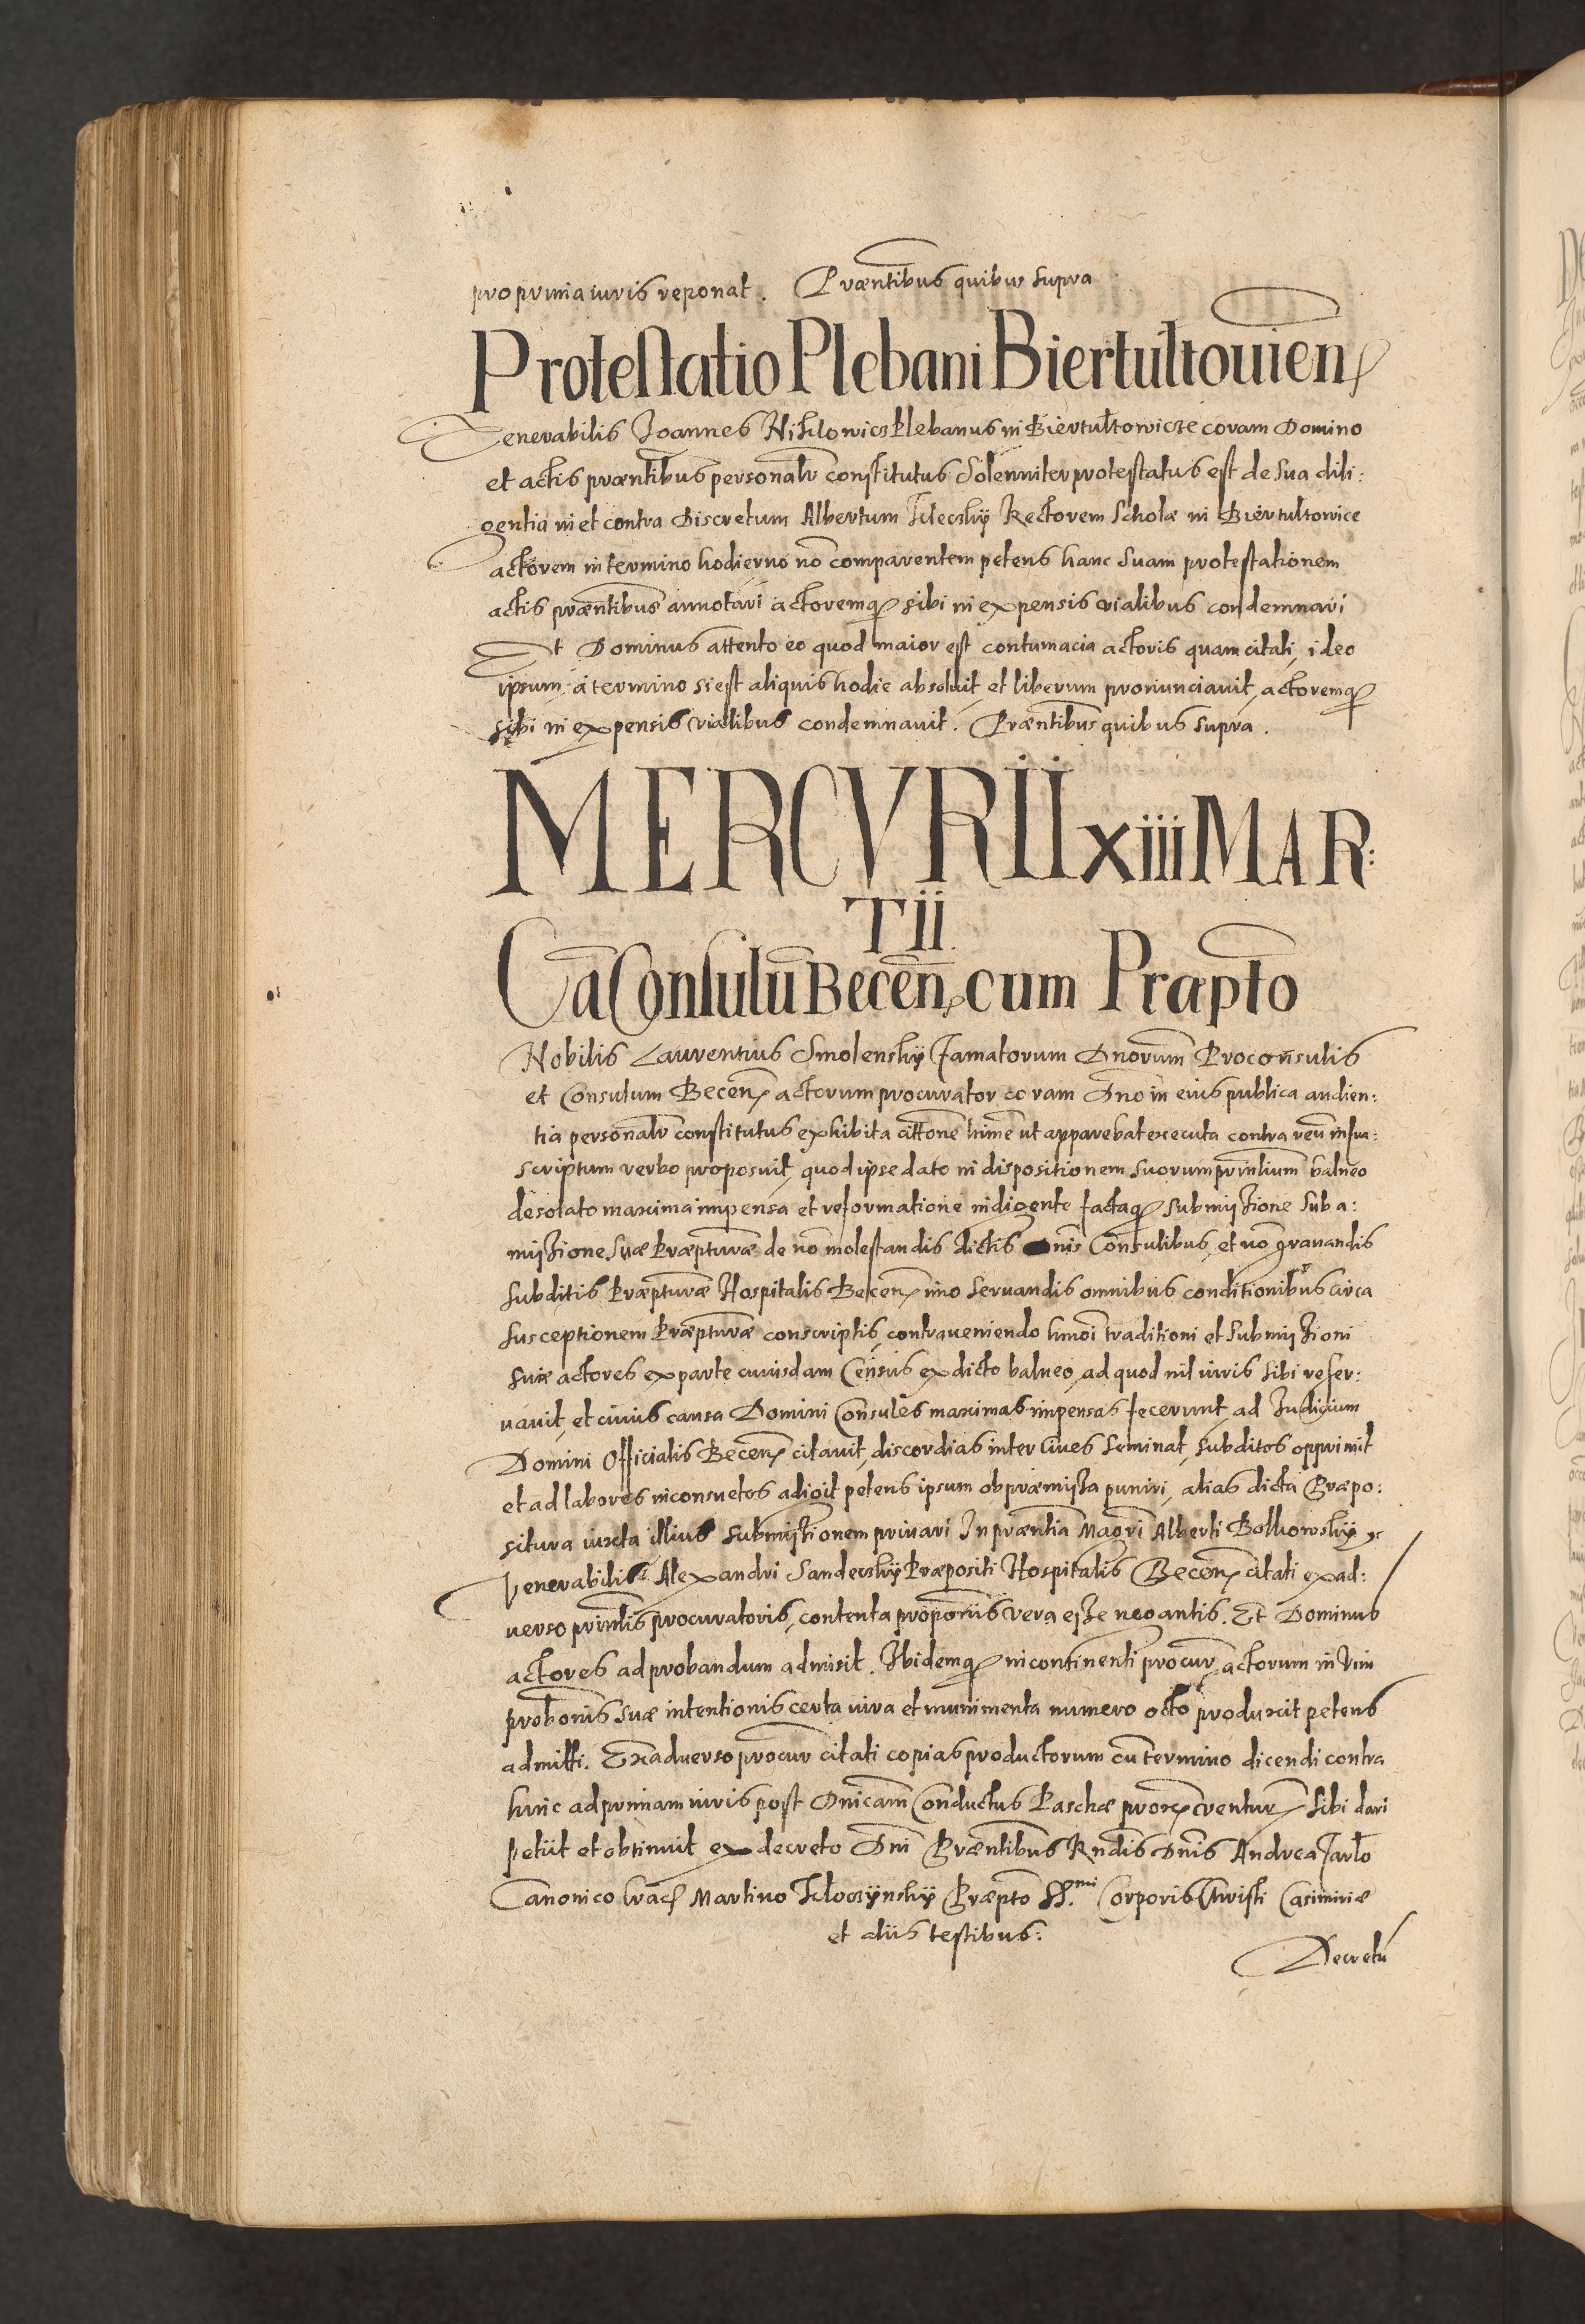 pro prima iuris reponat. Præntibus quibus supra
Protestatio Plebani Biertultouien
Venerabilis Joannes Niklowicz Plebanus in Biertułtowicze coram Domino
et actis præntibus personalr constitutus Solenniter protestatus est de sua dili:
gentia in et contra Discretum Albertum Rectorem Scholæ in Biertultowice
actorem in termino hodierno nō comparentem petens hanc suam protestationem
actis præntibus annotari actoremq sibi in expensis vialibus condemnari
Et Dominus attento eo quod maior est contumacia actoris quam citati, ideo
ipsum à termino si est aliquis hodie absoluit et liberum pronunciauit, actoremq
sibi in expensis vialibus condemnauit. Præntibus quibus supra.
MERCVRII xiii MAR:
TII
Cā Consulū Becēn cum Præpto
Nobilis Laurentius Smolenskÿ famatorum Dnorum Proconsulis
et Consulum Becen actorum procurator coram Dno in eius publica audien:
tia personalr constitutus exhibita cittone hinc ut apparebat executa contra reū infra:
scriptum verbo proposuit, quod ipse dato in dispositionem suorum prinlium balneo
desolato maxima impensa et reformatione indigente factaq submissione sub a:
missione suæ Præpturæ de nō molestandis dictis Dnis Consulibus, et nō grauandis
subditis Præpturæ Hospitalis Becen imo seruandis omnibus conditionibus circa
susceptionem Præpturæ conscriptis, contraueniendo hmoi traditioni et submissioni
suæ actores ex parte cuiusdam Census ex dicto balneo, ad quod nil iuris sibi reser:
uauit, et cuius causa Domini Consules maximas impensas fecerunt ad Judicium
Domini Officialis Becen citauit, discordias inter Ciues seminat, subditos opprimit
et ad labores inconsuetos adigit petens ipsum ob præmissa puniri, alias dicta Præpo:
situra iuxta illius submissionem priuari In præntia Magri Alberti Bolkowskÿ
Venerabilis Alexandri Sandeczkÿ Præpositi Hospitalis Becen citati ex ad:
uerso prinlis procuratoris, contenta propōnis vera esse negantis. Et Dominus
actores ad probandum admisit. Ibidemq incontinenti procur actorum in vim
probonis suæ intentionis certa iura et munimenta numero octo produxit petens
admitti. Ex aduerso procur citati copias productorum cū termino dicendi contra
hinc ad primam iuris post Dnicam Conductus Paschæ prox venturs sibi dari
petiit et obtinuit ex decreto Dni Præntibus Rndis Dnis Andrea
Canonico Crac Martino Kłoczÿnskÿ Præpto SS.mi Corporis Christi Casimiriæ
et aliis testibus:
Decretū